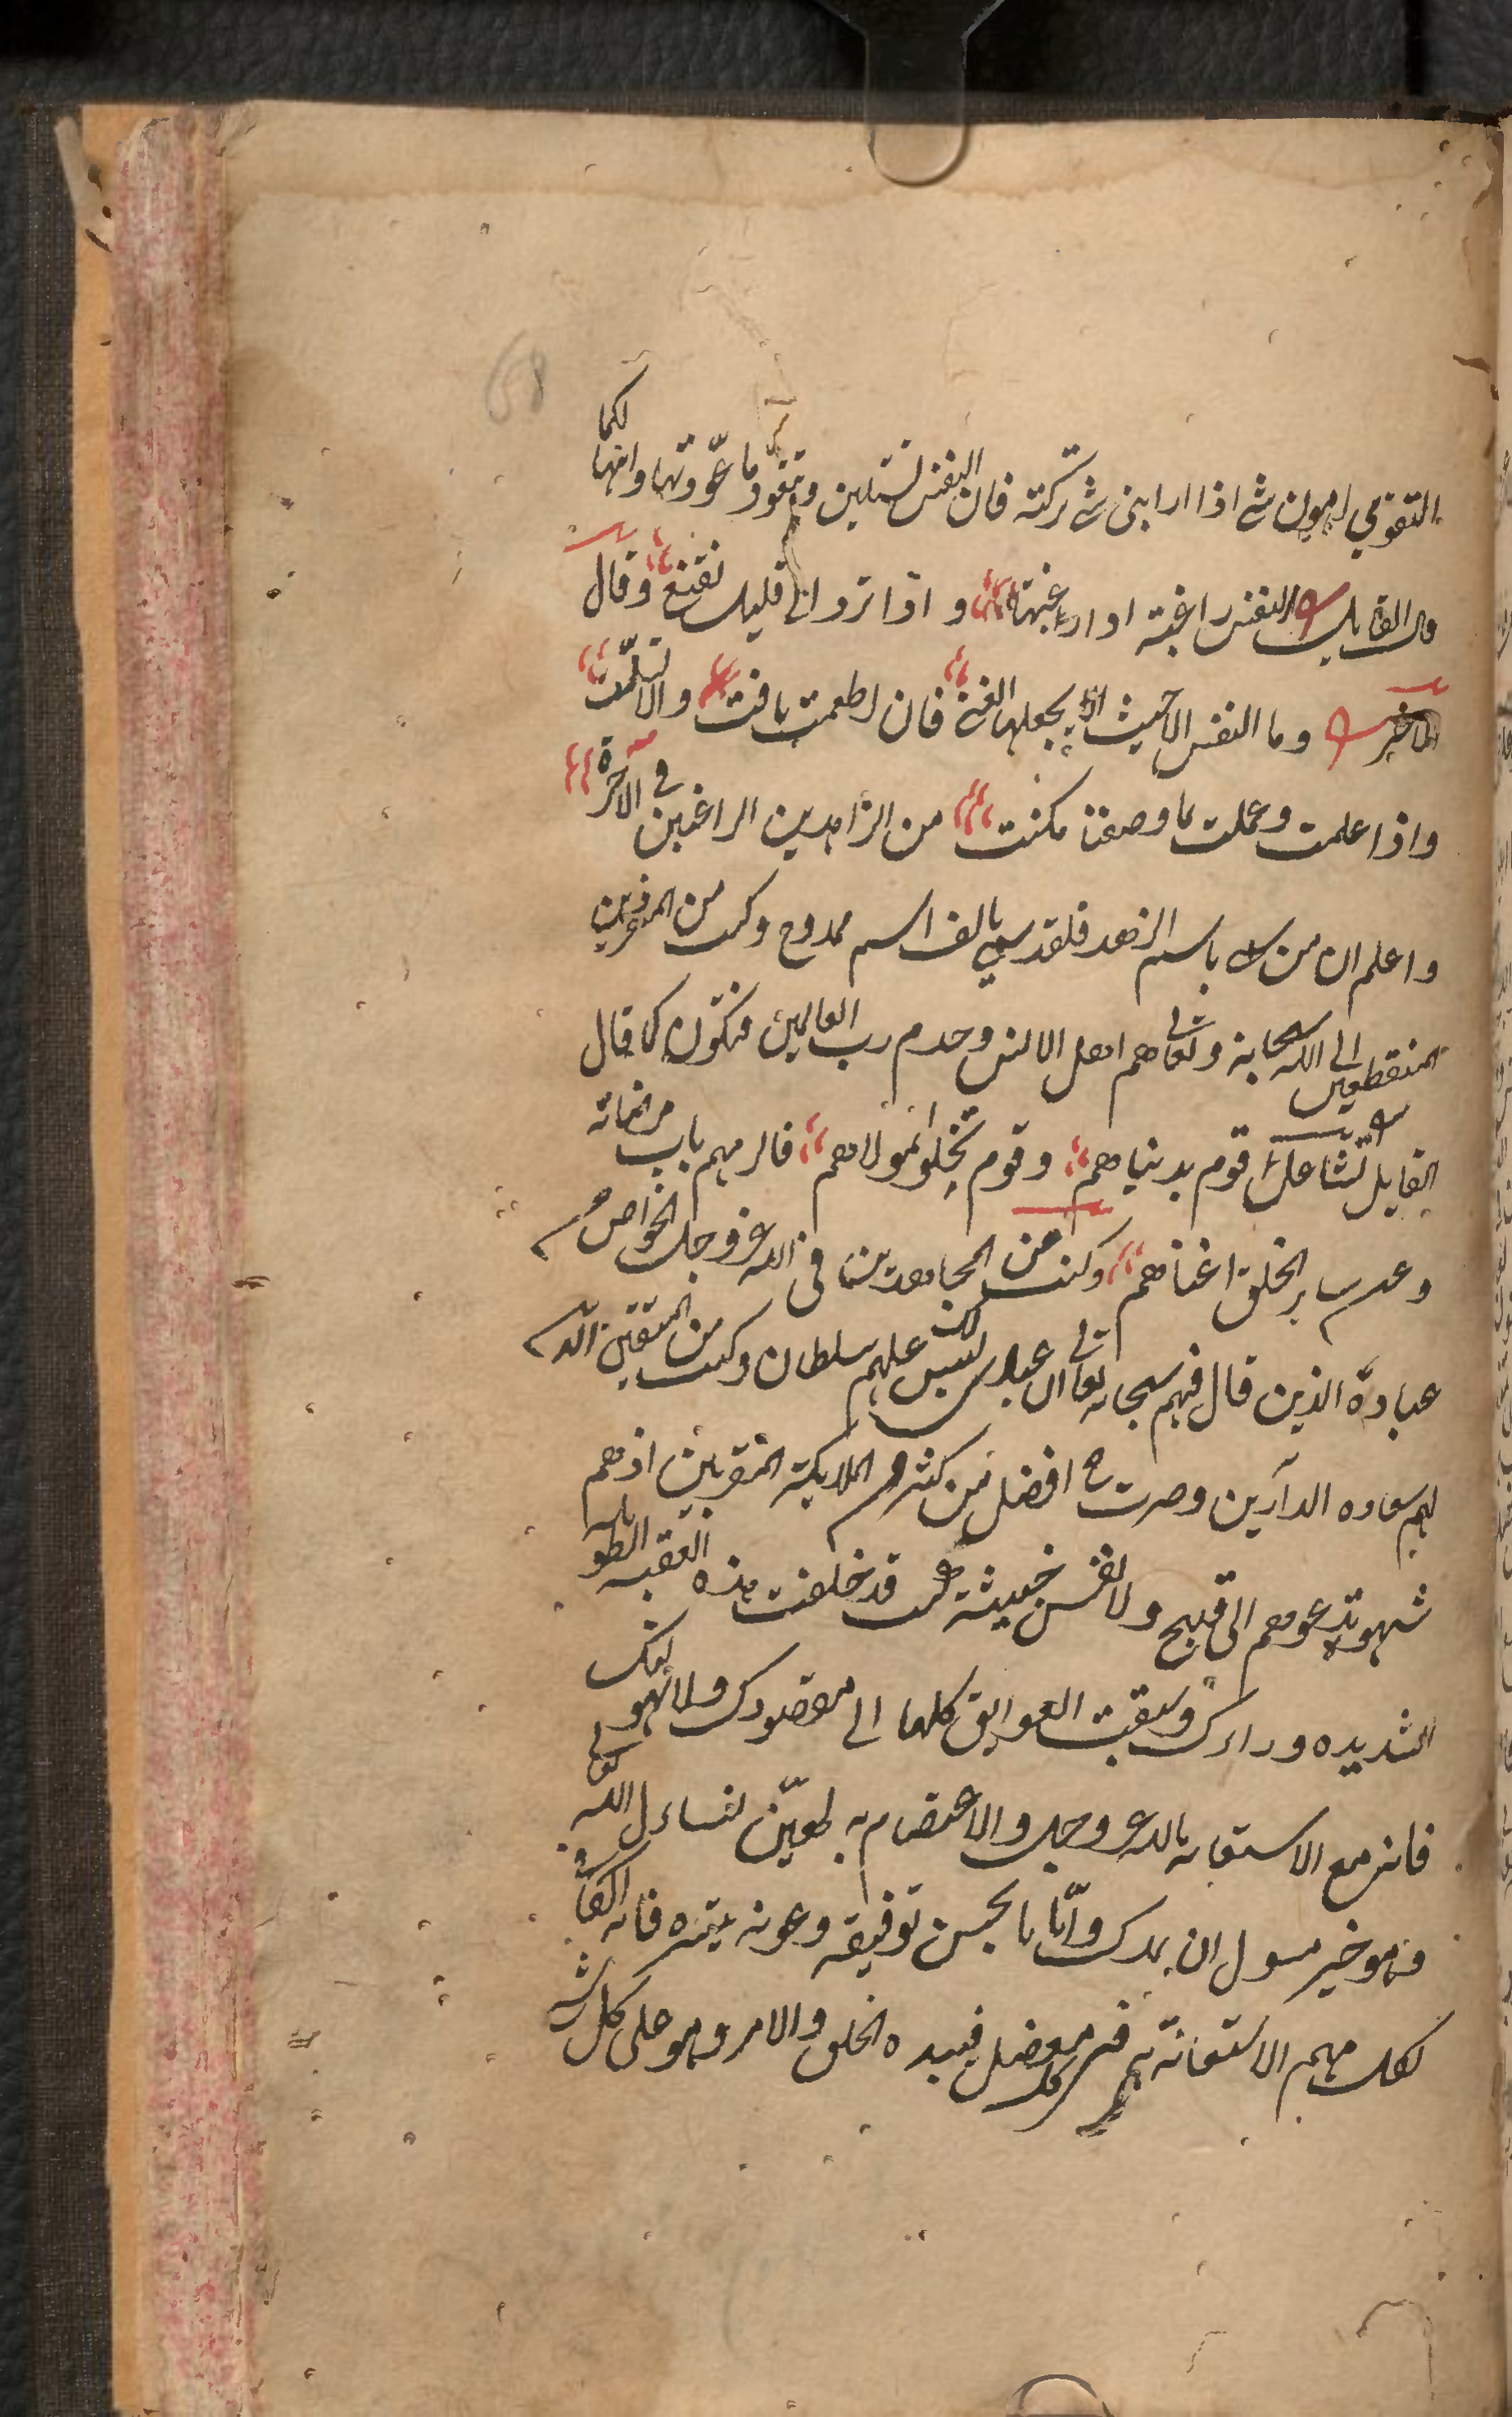 68
التقوي اهون شي اذا رابني شي تركته فان النفس تستلين وتتعود ما عودتها وانها لكما
قال القايل النفس راغبة اذا رغبتها واذا ترد الى قليل تقنع وقال
الاخر وما النفس الا حيث يجعلها الفتى فان اطعمت تاقت والا تسلت
واذا علمت وعملت بما وصفنا كنت من الزاهدين الراغبين في الآخرة
واعلم ان من سمي باسم الزهد فلقد سمي بالف اسم ممدوح وكنت من المنفردين
المنقطعين الى الله سبحانه وتعالى هم اهل الانس وخدم رب العالمين فتكون كما قال
القايل تشاغل قوم بدنياهم وقوم تخلوا لمولاهم فالزمهم باب مرضاته
وعن ساير الخلق اغناهم وكنت من المجاهدين في الله عز وجل الخواص من
عباده الذين قال فيهم سبحانه تعالى ان عبادي ليس لك عليهم سلطان وكنت من المتقين الذين
لهم سعاده الدارين وصرت ح افضل من كثير من الملايكة المقربين اذ هم
شهوة تدعوهم الى قبيح ولا نفس خبيثة قد خلفت هذه العقبه الطويله
الشديده وراءك وسبقت العوايق كلها الى مقصودك ولا يهولنك
فانه مع الاستعانه بالله عز وجل والاعتصام به لهين نسال الله تعالى
وهو خير مسول ان يمدك وايانا بحسن توفيقه وعونه بمنه فانه الكافي
لكل مهم الاستعانة به في كل معضل فبيده الخلق والامر وهو على كل شي